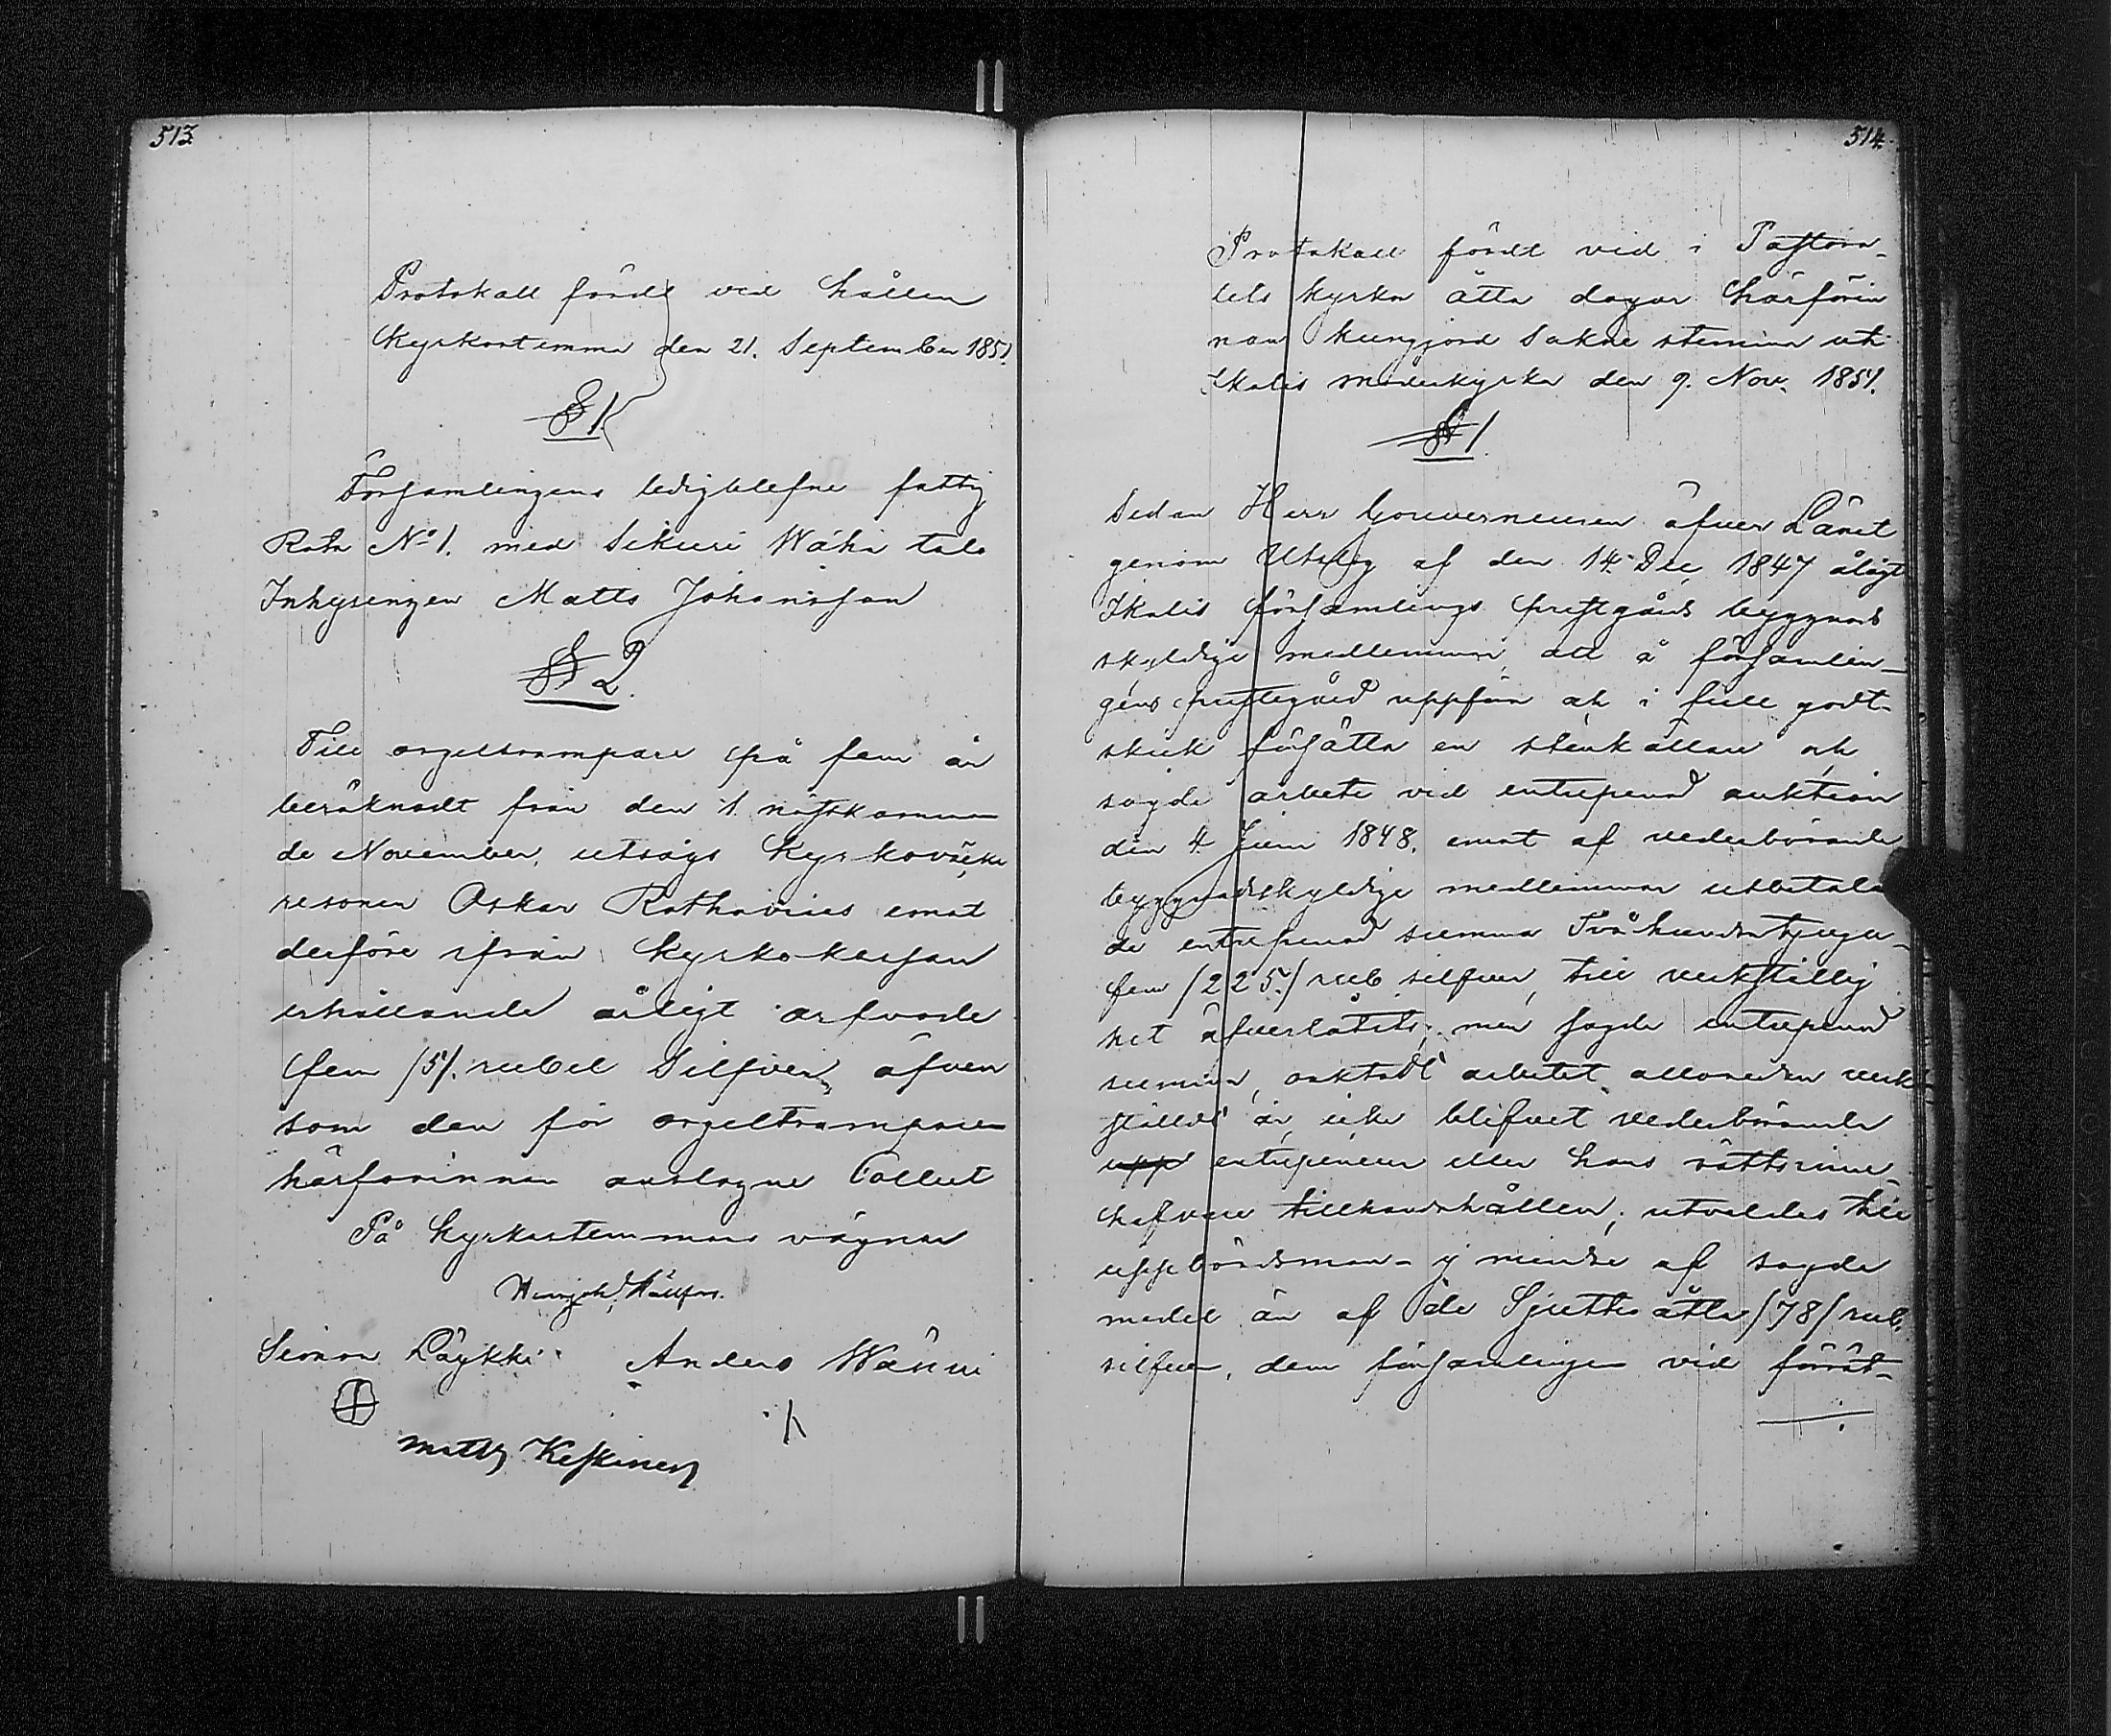 513
Protokoll fördt vid hållen
Kyrkostemma den 21. September 1851.
§ 1.
Församlingens ledigblefne fattig
Rota No 1. med Sikuri Wähä tale
Inhysingen Matts Johansson
§ 2.
Till orgeltrampare på fem år
beräknadt från den 1. nästkomman
de November, utsågs Kyrkoväckta
resonen Oskar Rothovius emot
derföre ifrån Kyrko-kassan
erhållande årligt arfvode
fem /5/. rubel Silfver, äfven
som den för orgeltramparen
härförinnan anslagne Collect
På Kyrkostemmans vägnar
Henr. Joh. Hällfors.
Simon Löykki Anders Wänni
Matts Keskinen
514.
Protokoll fördt vid i Pastora-
tets kyrka åtta dagar härförin
nan kungjord Sokne stemma uti
Ikalis moderkyrka den 9. Nov. 1851.
§ 1.
Sedan Herr Gouverneuren öfver Länet
genom Utslag af den 14. Dec. 1847 ålagt
Ikalis församlings prestgårds byggnads
skyldige medlemmar, att å församlin-
gens prestegård uppföra och i full godt-
skick försätta en stenkällare och
sagde arbete vid entreprenad auktion
den 4. Juni 1848. emot af vederbörande
byggnadsskyldige medlemmar utbetalan
de entreprenad summa Tvåhundratjugu-
fem /225./ rub silfver, till verkställig
het öfverlåtits; men sagde entreprenad
summa, oaktadt arbetet alloredan verk
stäldt är, icke blifvit vederbörande
upp entrepreneur eller hans rättsinne-
hafvare tillhandahållen; utvaldes till
uppbördsman - ej mindre af sagde
medel än af de Sjuttioåtta /78/ rub.
silfver, dem församlingen vid förrät-